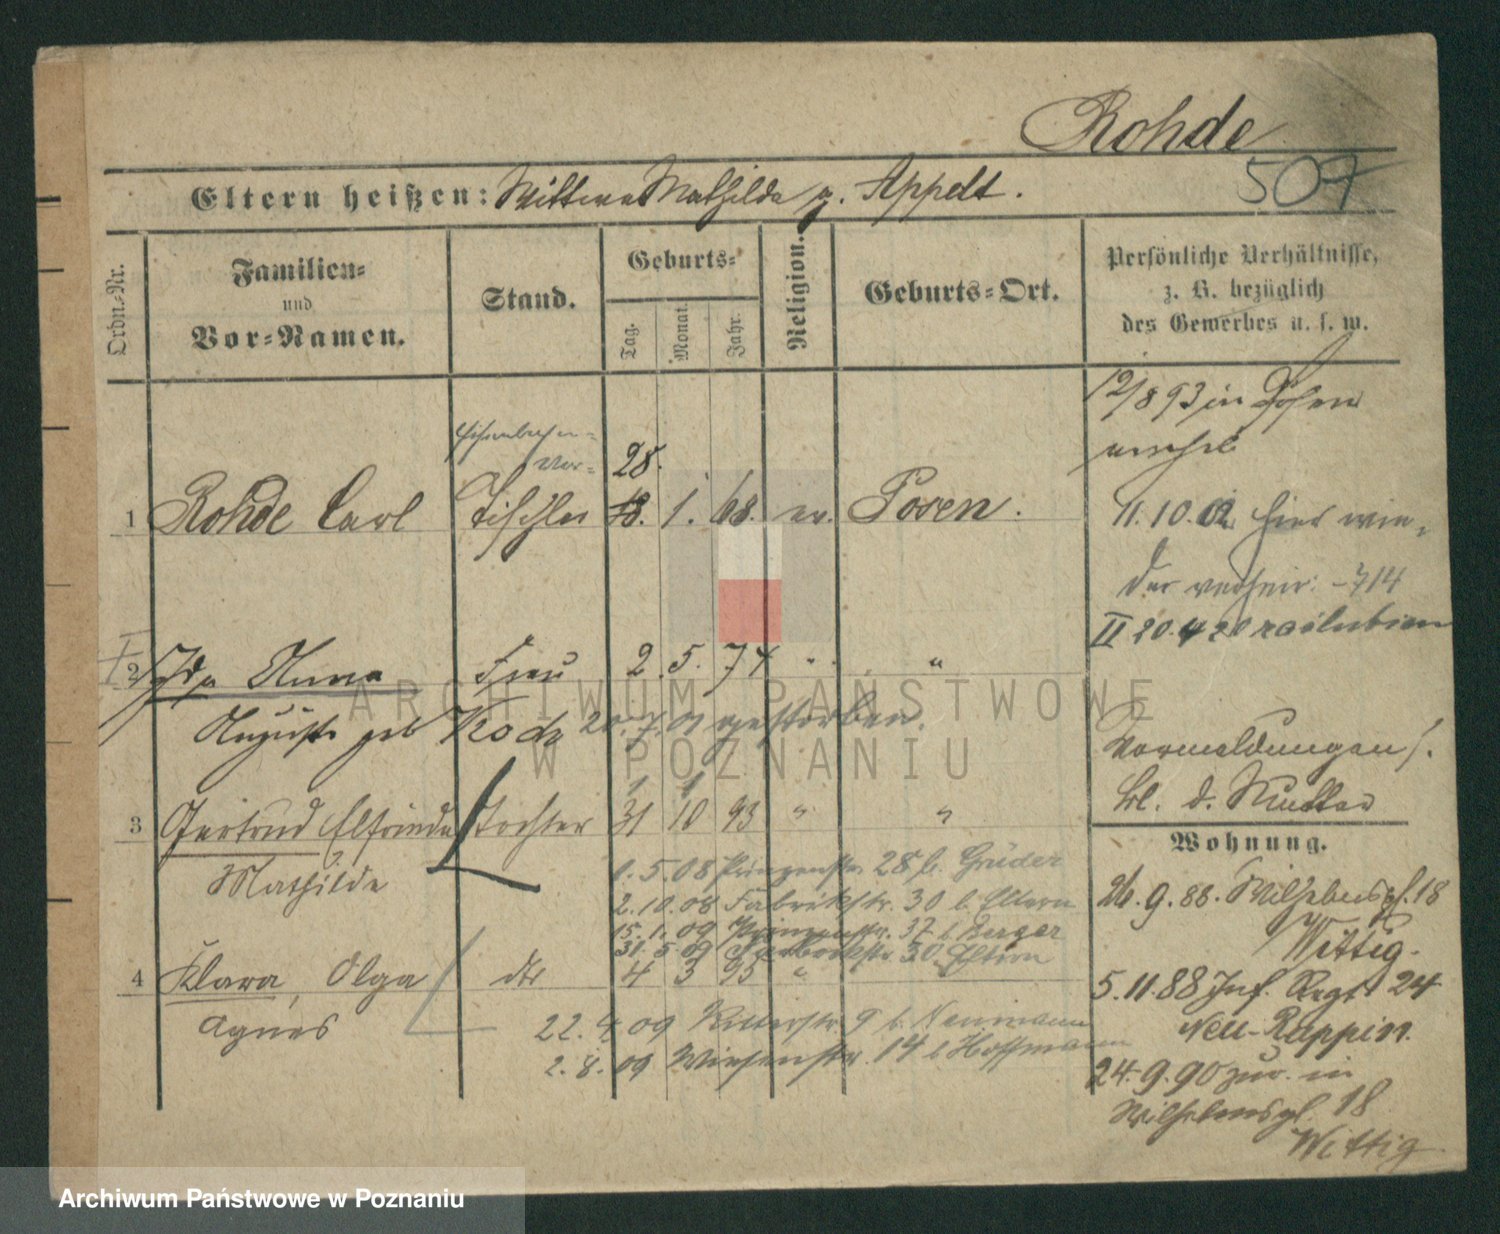 Rohde
507
Eltern heißen: Wittwe Mathilde g. Appelt.
Ordn.-Nr.
Familien-
und
Vor-Namen.
Stand.
Geburts-
Tag.
Monat.
Jahr.
Religion.
Geburts-Ort.
Persönliche Verhältnisse,
z. B. bezüglich
des Gewerbes u. s. w.
12/8 93 in Posen
verehel
28.
1 Rohde Carl Tischler 18. 1. 68. ev. Posen.
11. 10. 02 hier wie-
der verheir: -714
II 20. 4 20
2 Ida Anna Frau 2. 5. 74 " "
Auguste geb Koch 20. 7. 01 gestorben.
Vormeldungen s.
bl. d. Mutter
1 1
3 Gertrud Elfriede Tochter 31 10 93 " "
Mathilde
Wohnung.
1. 5. 08 Prinzenstr 28 b. Gruder
2. 10. 08 Fabrikstr. 30 b. Eltern
15. 1. 09 Prinzenstr. 37 b Berger
31. 5 09 Fabrikstr 30 Eltern
4 Klara, Olga dto 4 3 95 "
Agnes
22. 4. 09 Ritterstr. 9 b. Neumann
2. 8. 09 Wiesenstr. 14 b Hoffmann
26. 9. 88. Wilhelmspl. 18
Wittig.
5. 11. 88 Inf. Regt 24
Neu-Ruppin.
24. 9. 90 zur. in
Wilhelmspl. 18
Wittig
ARCHIWUM PAŃSTWOWE
W POZNANIU
Archiwum Państwowe w Poznaniu